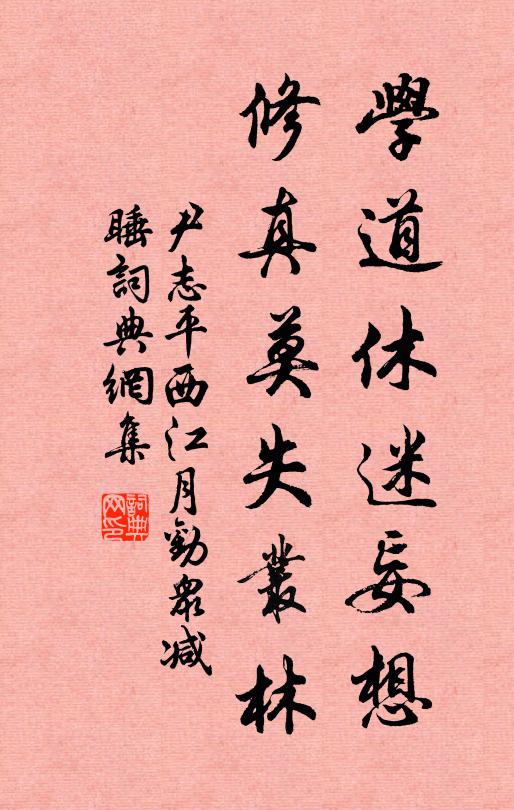 學道休迷妄想
修真莫失叢林
尹志平西江月勸衆减
睡詞典網集
詞典網印